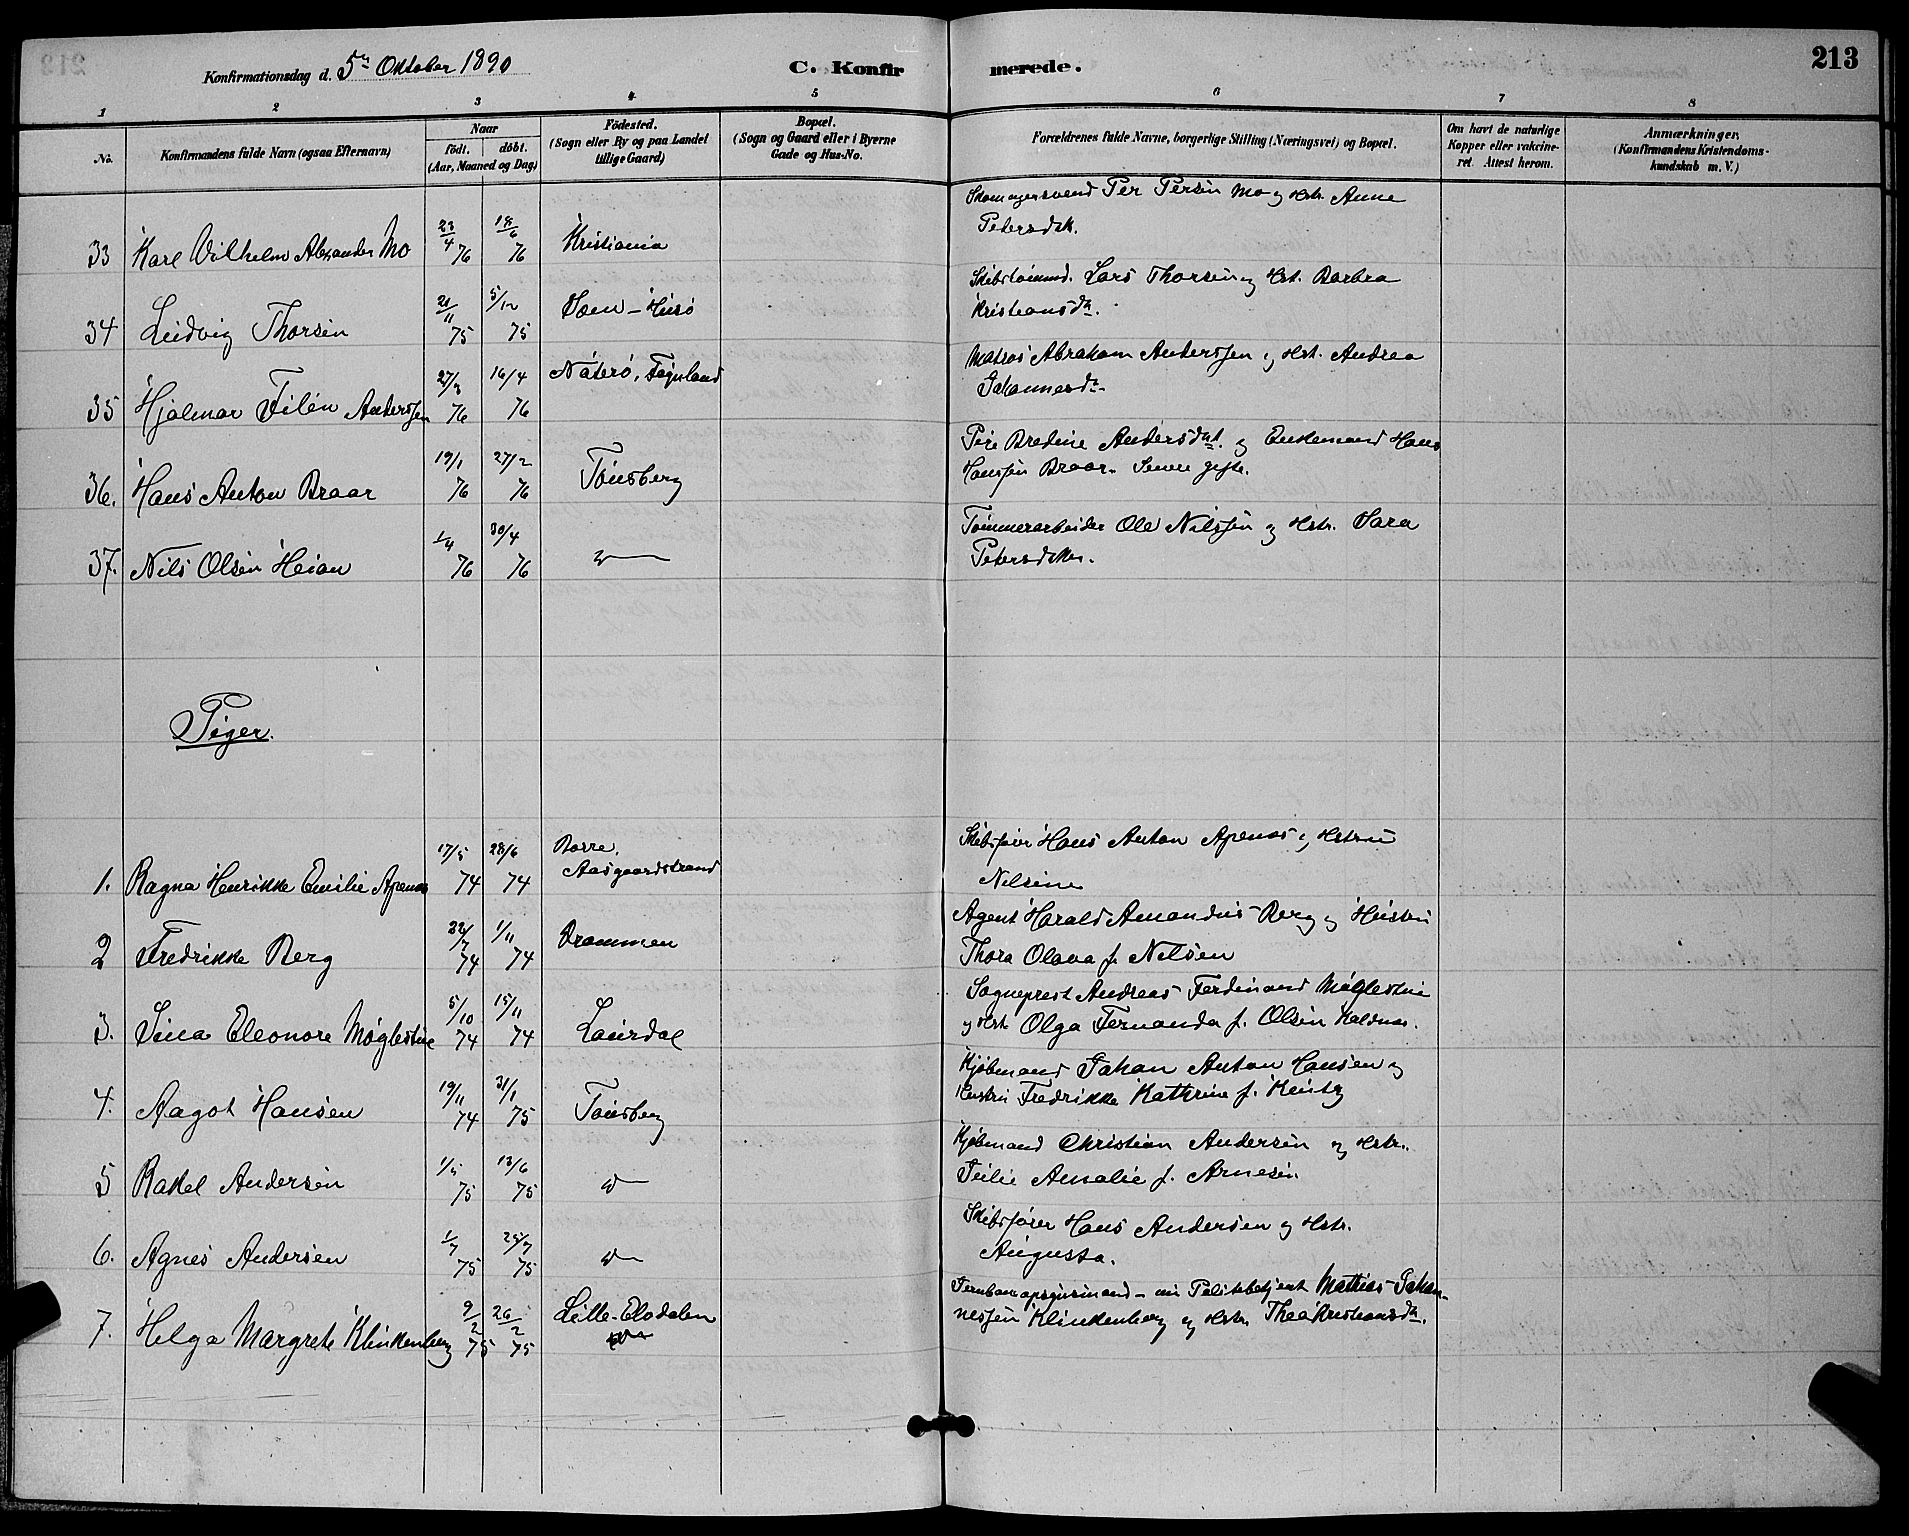 213
Konfirmationsdag d. 5te Oktober 1890
C. Konfirmerede.
1 2 3 4 5 6 7 8
No.
Konfirmandens fulde Navn (ogsaa Efternavn)
Naar
födt. döbt.
(Aar, Maaned og Dag)
Födested.
(Sogn eller By og paa Landet
tillige Gaard)
Bopæl.
(Sogn og Gaard eller i Byerne
Gade og Hus-No.
Forældrenes fulde Navne, borgerlige Stilling (Næringsvei) og Bopæl.
Om havt de naturlige
Kopper eller vaccine-
ret. Attest herom.
Anmærkninger.
(Konfirmandens Kristendoms-
kundskab m. V.)
33 Karl Vilhelm Alexander Mo 23/4 76 18/6 76 Kristiania Skomagersvend Per Persen Mo og Hstr. Anne
Petersdtr.
34 Ludvig Thorsen 21/11 75 5/12 75 Sem - Husö Lars Thorsen og Hst. Barbra
Kristiansdtr.
35 Hjalmar Filén Anderssen 27/3 76 16/4 76 Nøterö, Føinland Matros Abraham Anderssen og Hst. Andrea
Johannesdtr.
36. Hans Anton Braar 19/1 76 27/2 76 Tönsberg Pige Bredine Andersdat. og Enkemand Hans
Hanssen Braar. Senere gifte.
37. Nils Olsen Heian 1/4 76 30/4 76 " Tömmerarbeider Ole Nilssen og Hstr. Sara
Petersdtter.
Piger.
1. Ragna Henrikke Emilie Apenæs 17/5 74 28/6 74 Borre, Aasgaardstrand Skibsförer Hans Anton Apenæs og Hstru
Nilsine
2 Fredrikke Berg 22/7 74 1/11 74 Drammen Agent Harald Amandus Berg og Hustru
Thora Olava f. Nilsen
3. Sina Eleonore Møglestue 5/10 74 15/11 74 Laurdal Sogneprest Andreas Ferdinand Møglestue
og Hst. Olga Fernanda f. Olsen Kaldnæs.
4. Aagot Hansen 19/11 74 31/1 75 Tönsberg Kjøbmand Johan Anton Hansen og
Hustru Fredrikke Kathrine f. Keütz
5 Rakel Andersen 1/5 75 13/6 75 " Kjøbmand Christian Andersen og Hstr.
Julie Amalie f. Arnesen.
6. Agnes Andersen 1/7 75 25/7 75 " Skibsförer Hans Andersen og Hstr.
Augusta.
7. Helga Margrete Klinkenberg 9/2 75 26/2 75 Lille-Elvdalen Jernbaneopsynsmand - nu Politibetjent Mathias Johan-
nessen Klinkenberg og Hstr. Thea Kristiansdtr.